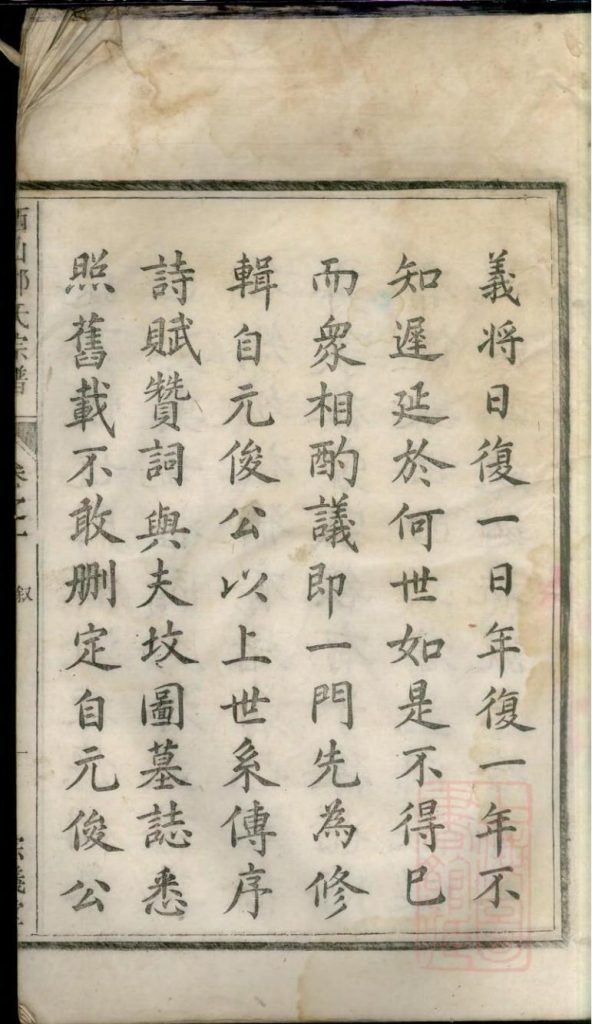 義將日復一日年復一年不
知遲延於何世如是不得已
而眾相酌議即一門先為修
輯自元俊公以上世系傳序
詩賦贊詞與夫坟圖墓誌悉
照舊載不敢删定自元俊公
氏宗譜
叙